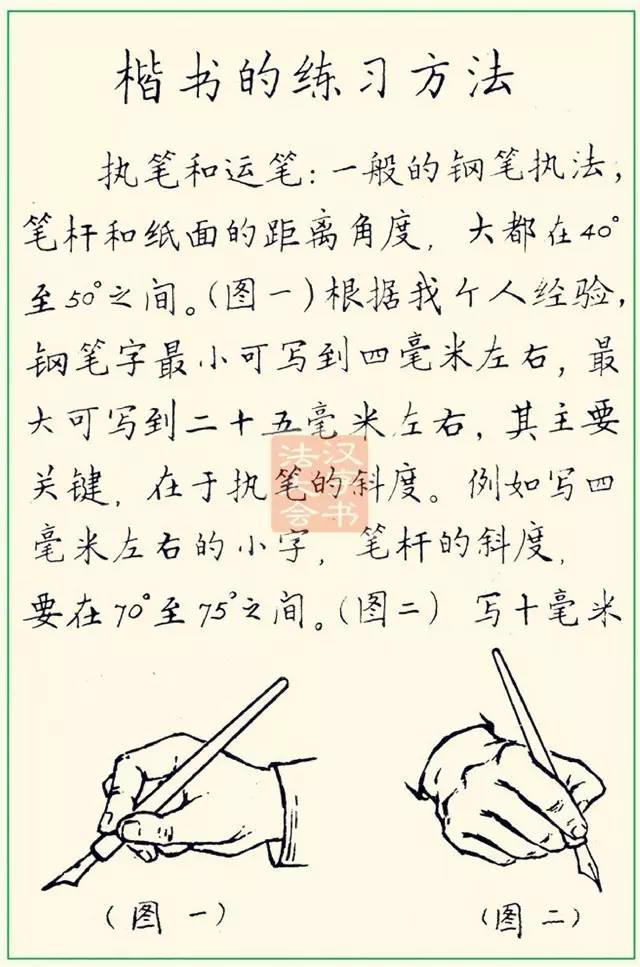 楷书的练习方法
执笔和运笔:一般的钢笔执法,
笔杆和纸面的距离角度,大都在40°
至50°之间。(图一)根据我个人经验,
钢笔字最小可写到四毫米左右,最
大可写到二十五毫米左右,其主要
关键,在于执笔的斜度。例如写四
毫米左右的小字,笔杆的斜度,
要在70°至75°之间。(图二) 写十毫米
(图 一)
(图 二)